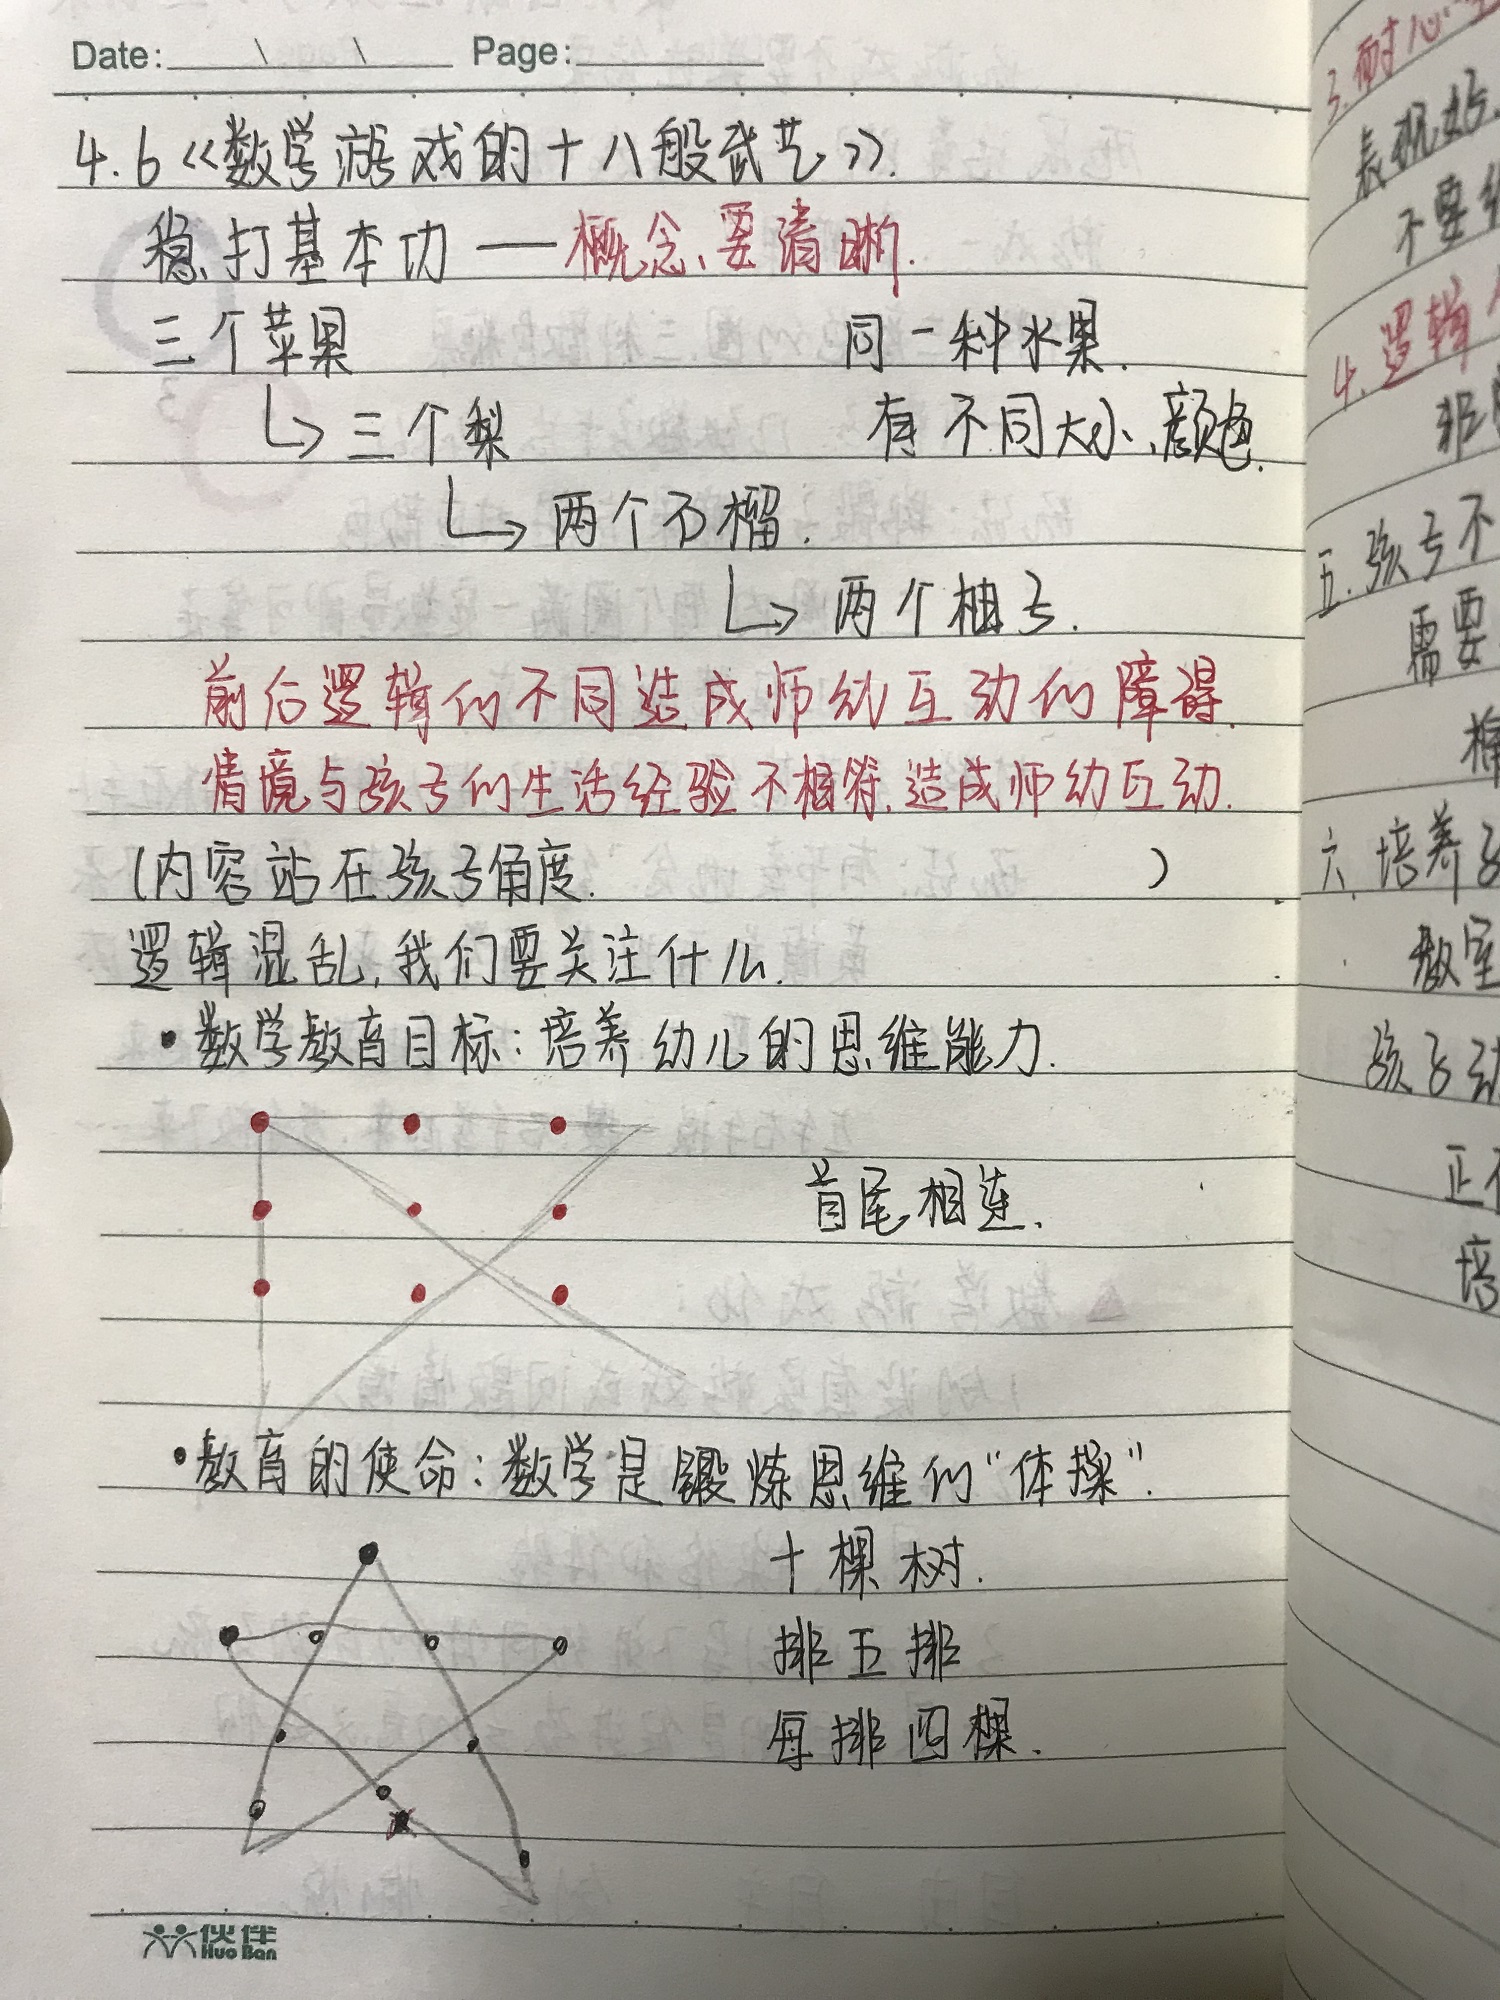 Date: \ \ Page:
4.6《数学游戏的十八般武艺》.
稳打基本功——概念要清晰.
三个苹果 同一种水果.
↳三个梨 有不同大小、颜色.
↳两个石榴.
↳两个柚子.
前后逻辑的不同造成师幼互动的障碍.
情境与孩子的生活经验不相符,造成师幼互动.
(内容站在孩子角度. )
逻辑混乱,我们要关注什么.
•数学教育目标:培养幼儿的思维能力.
首尾相连.
•教育的使命:数学是锻炼思维的“体操”.
十棵树.
排五排
每排四棵.
伙伴
Huo Ban
3.耐心
表现好.
不要
4.逻辑
五.孩子不
需要
六.培养
教室
孩子动
培